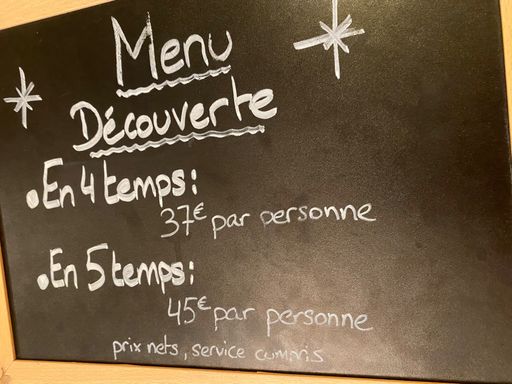 Menu
Découverte
• En 4 temps:
37€ par personne
• En 5 temps:
45€ par personne
prix nets, service compris